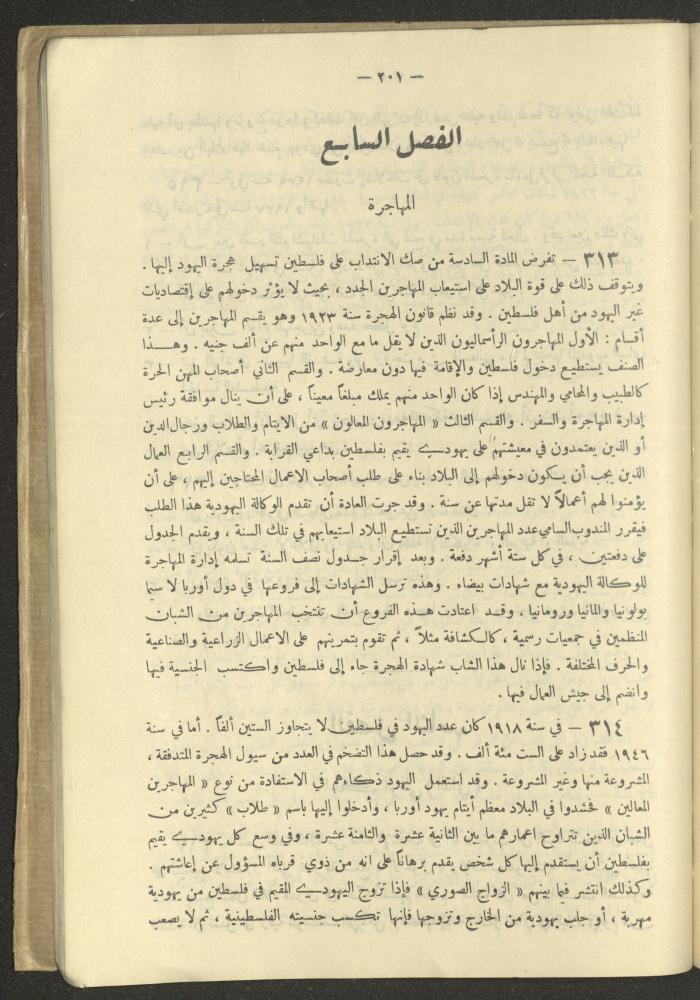 — ٢٠١ —
الفصل السابع
المهاجرة
٣١٣ — تفرض المادة السادسة من صك الانتداب على فلسطين تسهيل هجرة اليهود إليها .
ويتوقف ذلك على قوة البلاد على استيعاب المهاجرين الجدد ، بحيث لا يؤثر دخولهم على إقتصاديات
غير اليهود من أهل فلسطين . وقد نظم قانون الهجرة سنة ١٩٢٣ وهو يقسم المهاجرين إلى عدة
أقسام : الأول المهاجرون الرأسماليون الذين لا يقل ما مع الواحد منهم عن ألف جنيه . وهـــذا
الصنف يستطيع دخول فلسطين والإقامة فيها دون معارضة . والقسم الثاني أصحاب المهن الحرة
كالطبيب والمحامي والمهندس إذا كان الواحد منهم يملك مبلغاً معيناً ، على أن ينال موافقة رئيس
إدارة المهاجرة والسفر . والقسم الثالث « المهاجرون المعالون » من الايتام والطلاب ورجال الدين
أو الذين يعتمدون في معيشتهم على يهودي يقيم بفلسطين بداعي القرابة . والقسم الرابع العمال
الذين يجب أن يكون دخولهم إلى البلاد بناء على طلب أصحاب الاعمال المحتاجين إليهم ، على أن
يؤمنوا لهم أعمالاً لا تقل مدتها عن سنة . وقد جرت العادة أن تقدم الوكالة اليهودية هذا الطلب
فيقرر المندوب السامي عدد المهاجرين الذين تستطيع البلاد استيعابهم في تلك السنة ، ويقدم الجدول
على دفعتين ، في كل ستة أشهر دفعة . وبعد إقرار جـدول نصف السنة تسلمه إدارة المهاجرة
للوكالة اليهودية مع شهادات بيضاء . وهذه ترسل الشهادات إلى فروعها في دول أوربا لا سيما
بولونيا والمانيا ورومانيا . وقد اعتادت هـذه الفروع أن تنتخب المهاجرين من الشبان
المنظمين في جمعيات رسمية ، كالكشافة مثلاً ، ثم تقوم بتمرينهم على الاعمال الزراعية والصناعية
والحرف المختلفة . فإذا نال هذا الشاب شهادة الهجرة جاء إلى فلسطين واكتسب الجنسية فيها
وانضم إلى جيش العمال فيها .
٣١٤ — في سنة ١٩١٨ كان عدد اليهود في فلسطين لا يتجاوز الستين ألفاً . أما في سنة
١٩٤٦ فقد زاد على الست مئة ألف . وقد حصل هذا التضخم في العدد من سيول الهجرة المتدفقة ،
المشروعة منها وغير المشروعة . وقد استعمل اليهود ذكاءهم في الاستفادة من نوع « المهاجرين
المعالين » فحشدوا في البلاد معظم أيتام يهود أوربا ، وأدخلوا إليها باسم « طلاب » كثيرين من
الشبان الذين تتراوح اعمارهم ما بين الثانية عشرة والثامنة عشرة ، وفي وسع كل يهودي يقيم
بفلسطين أن يستقدم إليها كل شخص يقدم برهاناً على انه من ذوي قرباه المسؤول عن إعاشتهم .
وكذلك انتشر فيما بينهم « الزواج الصوري » فإذا تزوج اليهودي المقيم في فلسطين من يهودية
مهربة ، أو جلب يهودية من الخارج وتزوجها فإنها تكسب جنسيته الفلسطينية ، ثم لا يصعب